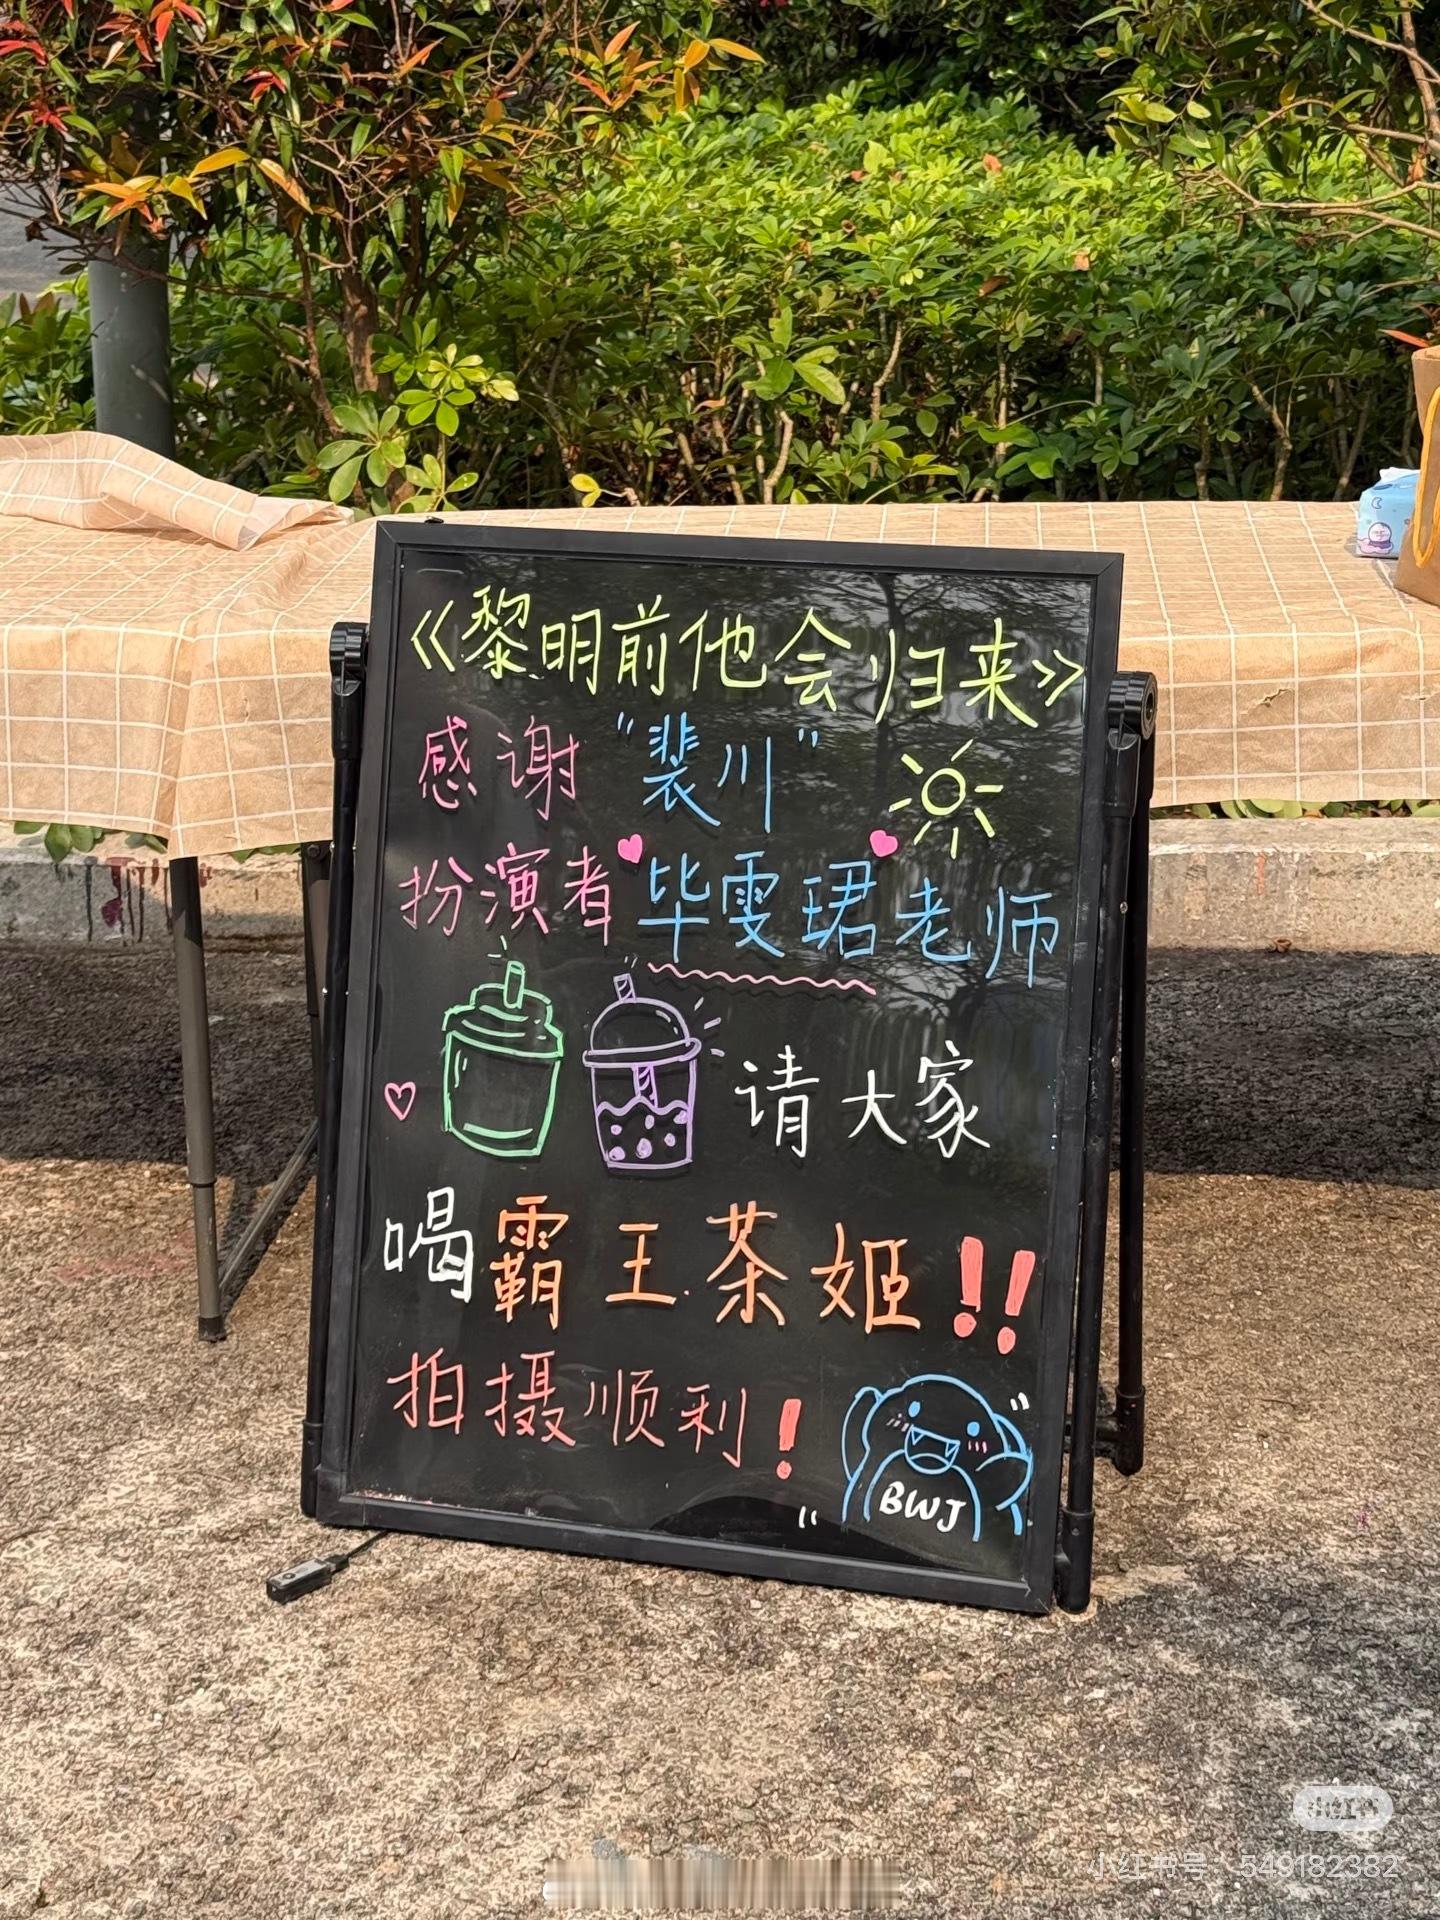 《黎明前他会归来》
感谢“裴川”
扮演者毕雯珺老师
请大家
喝霸王茶姬!!
拍摄顺利!
BWJ
小红书
小红书号：549182382